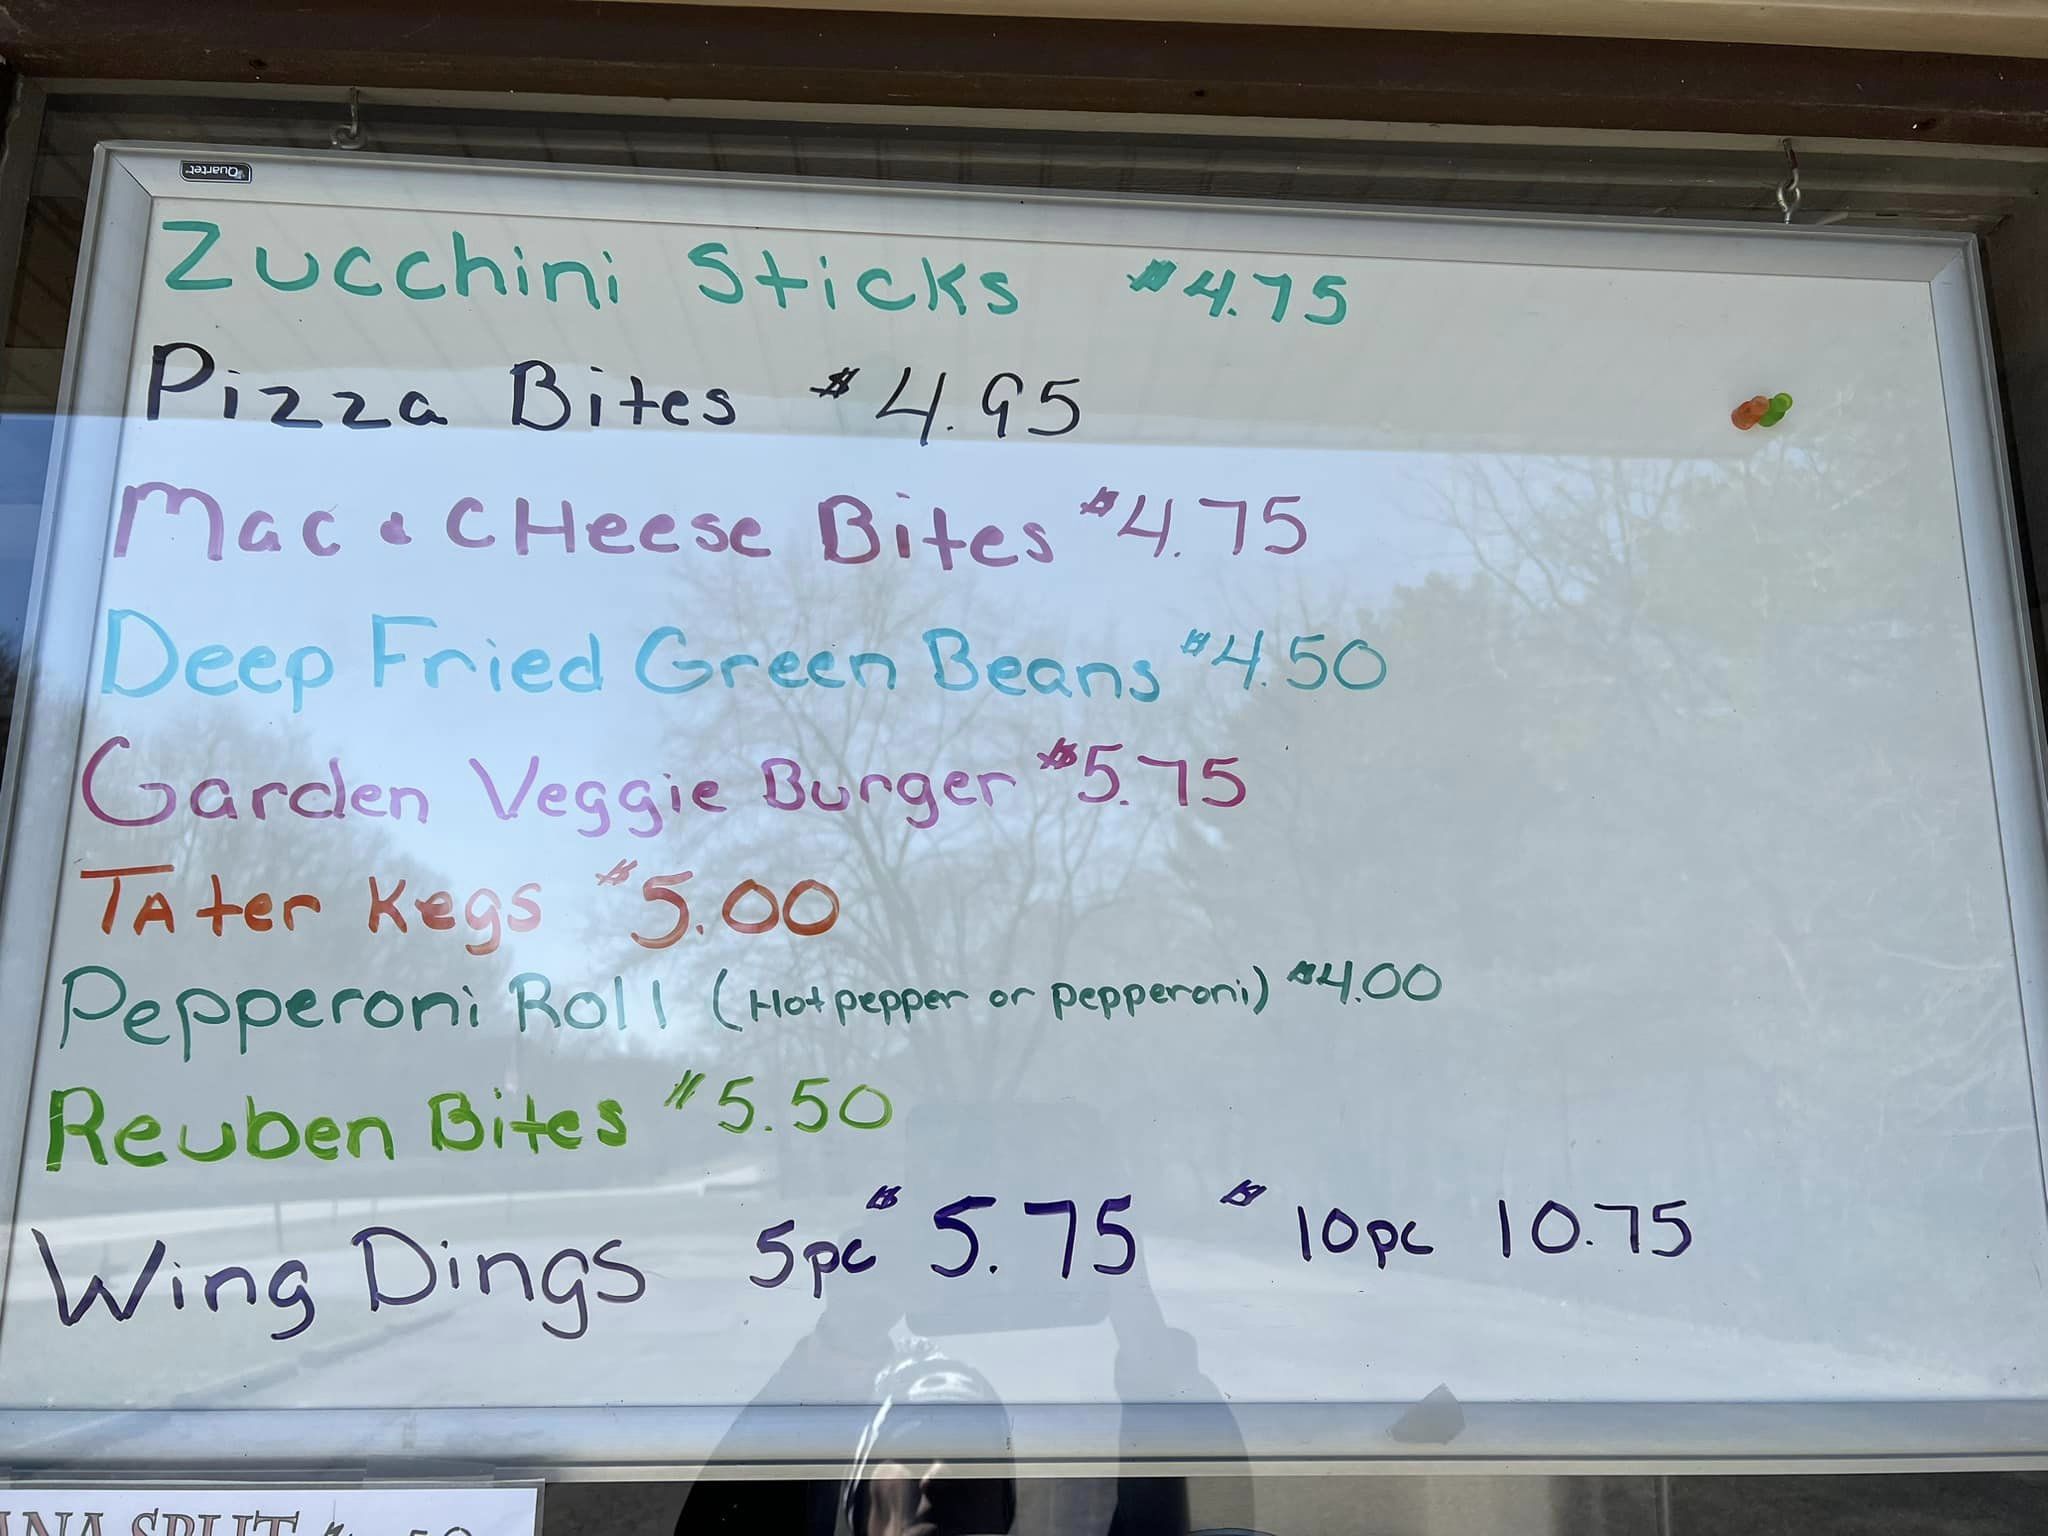 Quartet
Zucchini Sticks $4.75
Pizza Bites $4.95
Mac & CHeese Bites $4.75
Deep Fried Green Beans $4.50
Garden Veggie Burger $5.75
TAter Kegs $5.00
Pepperoni Roll (Hot pepper or pepperoni) $4.00
Reuben Bites $5.50
Wing Dings 5pc $5.75 $10pc 10.75
SPLIT